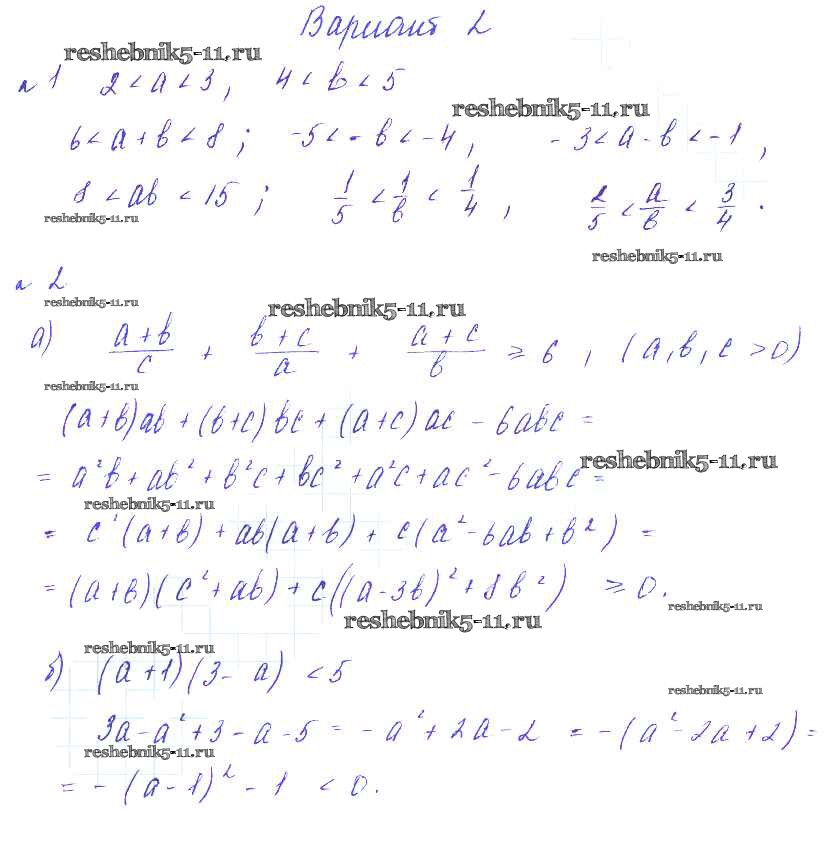 Вариант 2
reshebnik5-11.ru
№ 1 2 < a < 3, 4 < b < 5
reshebnik5-11.ru
6 < a + b < 8; -5 < -b < -4, -3 < a - b < -1,
8 < ab < 15; 1/5 < 1/b < 1/4, 2/5 < a/b < 3/4.
reshebnik5-11.ru
reshebnik5-11.ru
№ 2
reshebnik5-11.ru
reshebnik5-11.ru
а) (a+b)/c + (b+c)/a + (a+c)/b ≥ 6, (a, b, c > 0)
reshebnik5-11.ru
(a+b)ab + (b+c)bc + (a+c)ac - 6abc =
reshebnik5-11.ru
= a²b + ab² + b²c + bc² + a²c + ac² - 6abc =
reshebnik5-11.ru
= c²(a+b) + ab(a+b) + c(a² - 6ab + b²) =
= (a+b)(c² + ab) + c((a-3b)² + 8b²) ≥ 0.
reshebnik5-11.ru
reshebnik5-11.ru
reshebnik5-11.ru
б) (a+1)(3-a) < 5
reshebnik5-11.ru
3a - a² + 3 - a - 5 = -a² + 2a - 2 = -(a² - 2a + 2) =
reshebnik5-11.ru
= -(a-1)² - 1 < 0.